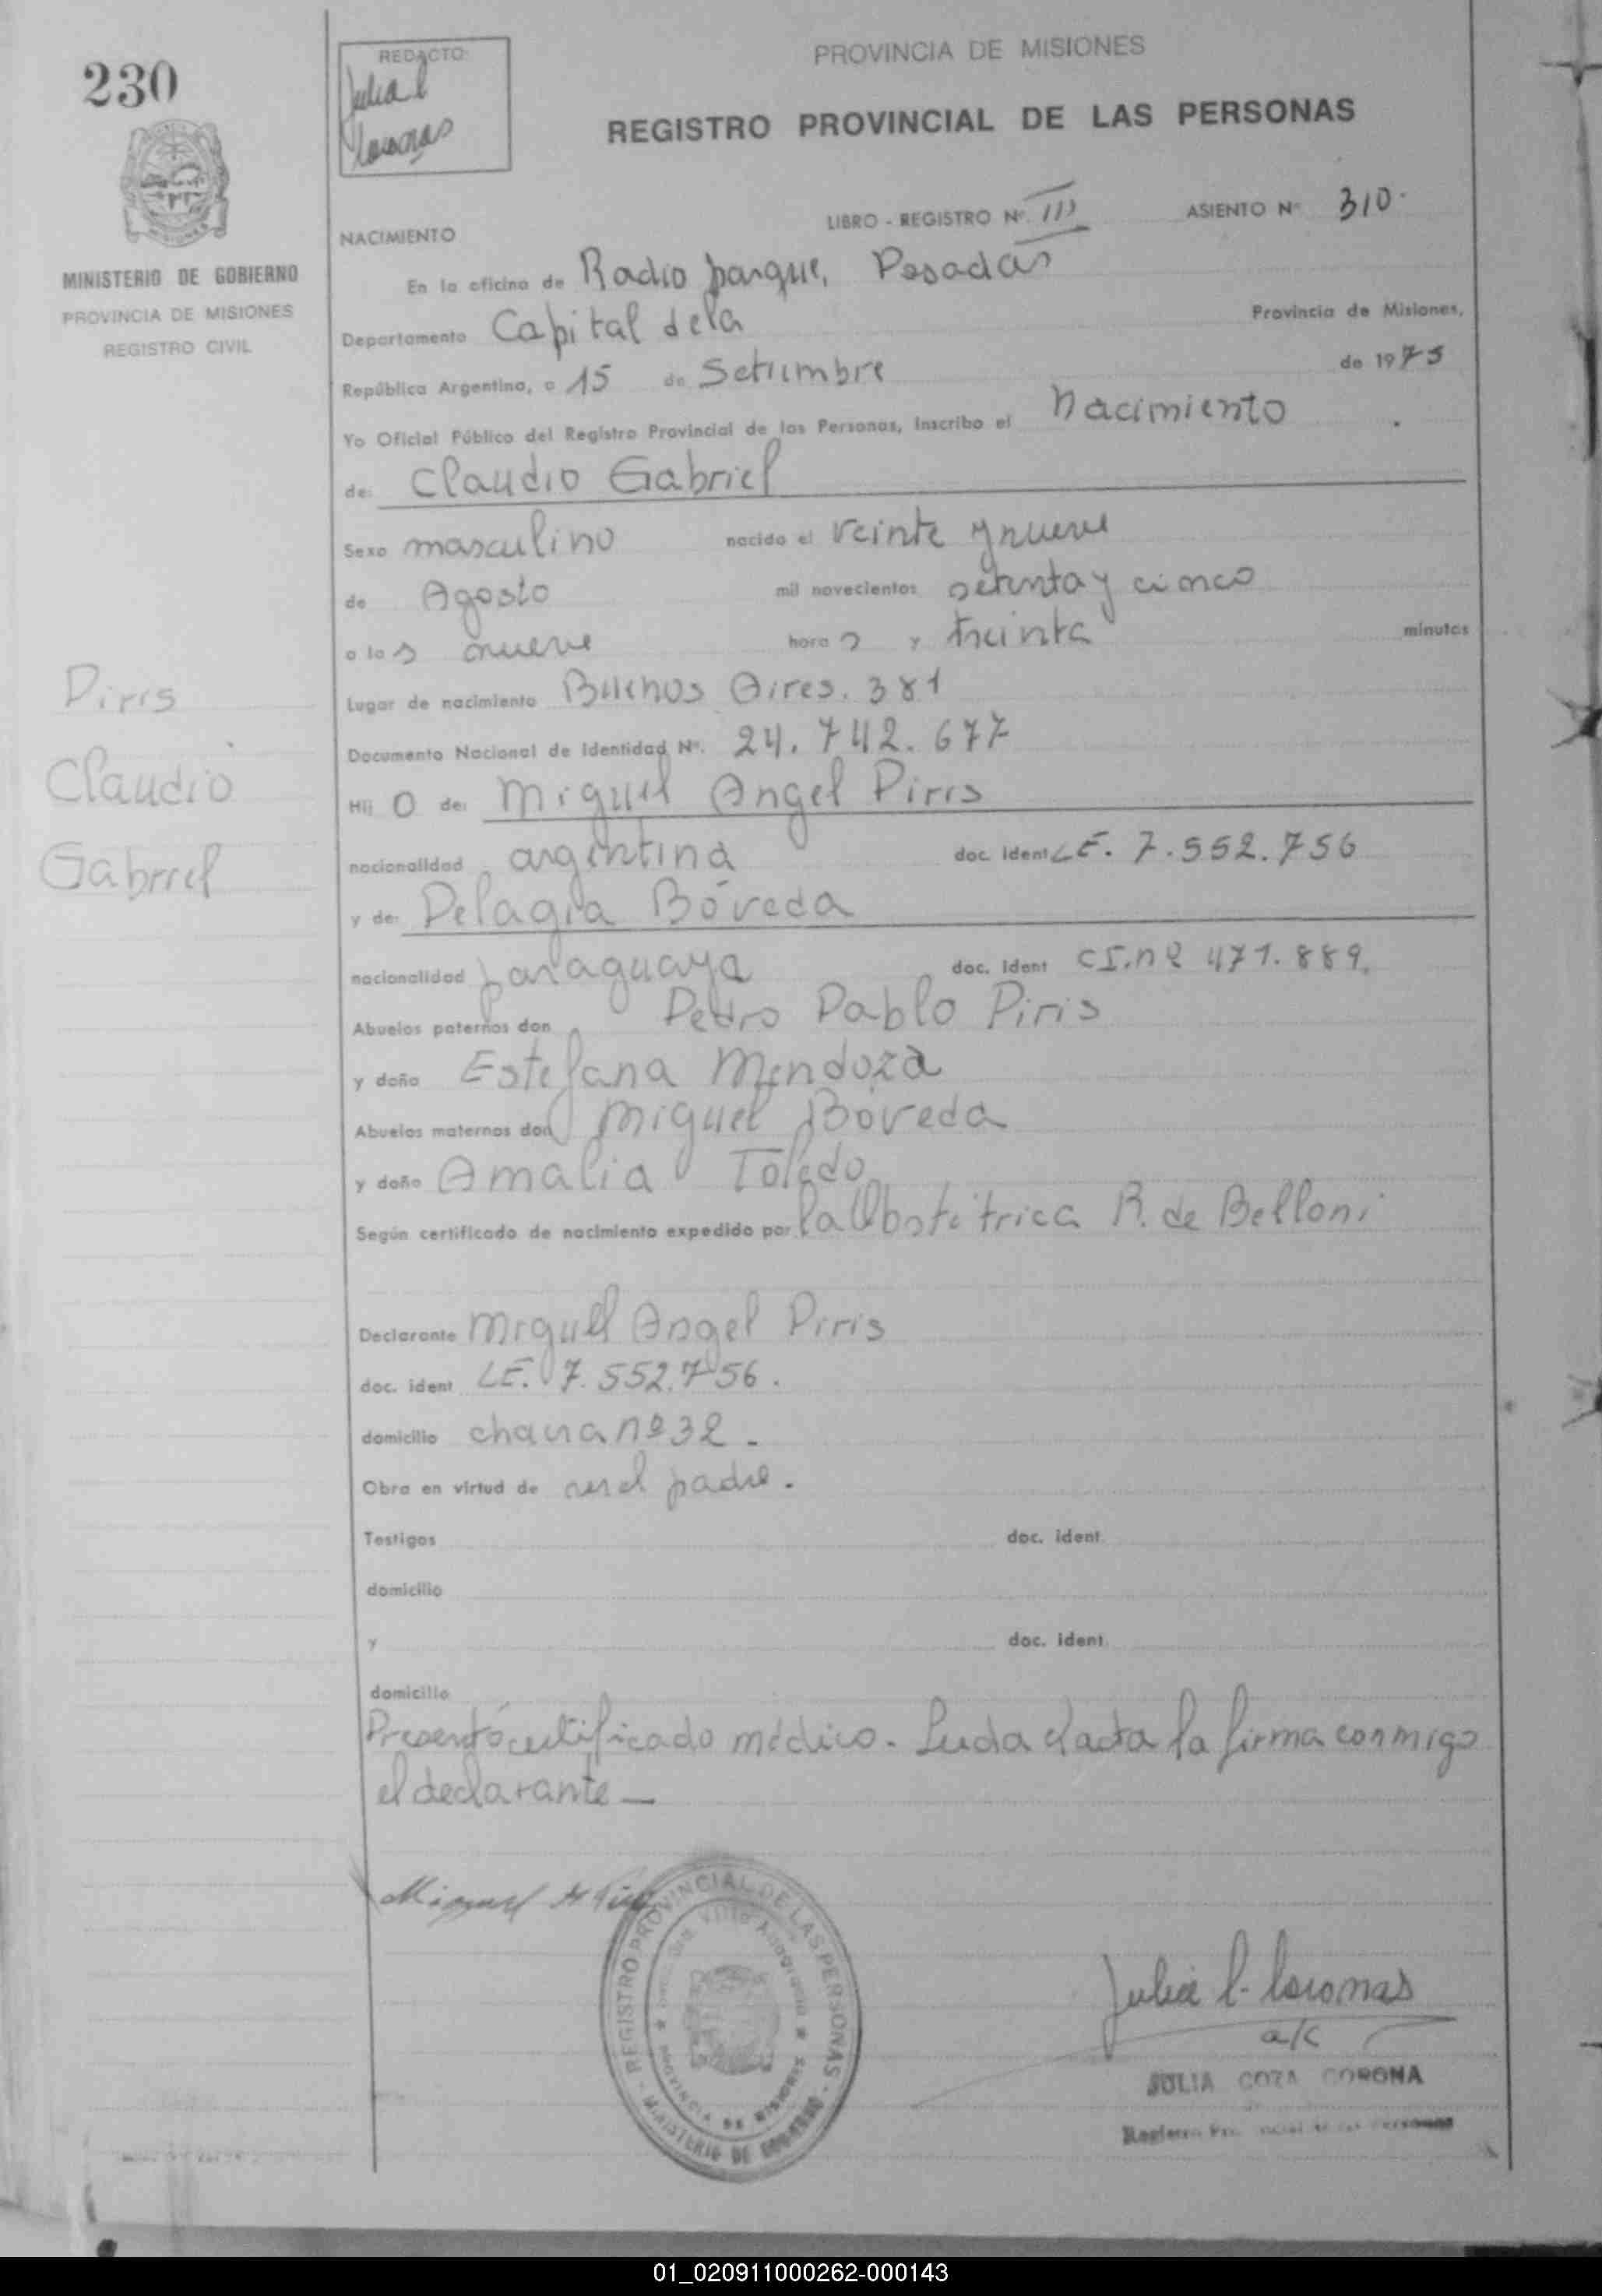 230
REDACTO:
Julia C
Coronas
PROVINCIA DE MISIONES
REGISTRO PROVINCIAL DE LAS PERSONAS
MINISTERIO DE GOBIERNO
PROVINCIA DE MISIONES
REGISTRO CIVIL
NACIMIENTO LIBRO - REGISTRO Nº. III ASIENTO Nº 310.
En la oficina de Radio parque, Posadas
Departamento Capital dela Provincia de Misiones,
República Argentina, a 15 de Setiembre de 1975
Yo Oficial Público del Registro Provincial de las Personas, Inscribo el Nacimiento
de: Claudio Gabriel
Sexo masculino nacido el veinte y nueve
de Agosto mil novecientos setenta y cinco
a las nueve horas y treinta minutos
Lugar de nacimiento Buenos Aires. 381
Documento Nacional de Identidad Nº. 24.742.677
Hij o de: Miguel Angel Piris
nacionalidad argentina doc. ident LE. 7.552.756
y de: Pelagia Bóveda
nacionalidad paraguaya doc. ident CI.nº 471.889.
Abuelos paternos don Pedro Pablo Piris
y doña Estefana Mendoza
Abuelos maternos don Miguel Bóveda
y doña Amalia Toledo
Según certificado de nacimiento expedido por la Obstetrica R. de Belloni
Declarante Miguel Angel Piris
doc. ident LE. 7.552.756.
domicilio chacra nº 32.
Obra en virtud de ser el padre.
Testigos doc. ident.
domicilio
y doc. ident.
domicilio
Presentó certificado médico. Leida el acta la firma conmigo
el declarante —
Piris
Claudio
Gabriel
Miguel A Piris
REGISTRO PROVINCIAL DE LAS PERSONAS
MINISTERIO DE GOBIERNO
PROVINCIA DE MISIONES
Julia C. Coronas
a/c
JULIA COZA CORONA
01_020911000262-000143